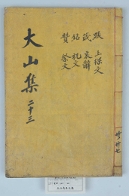 跋 上樑文
哀辭
銘 祝文
贊 祭文
大山集 二十三